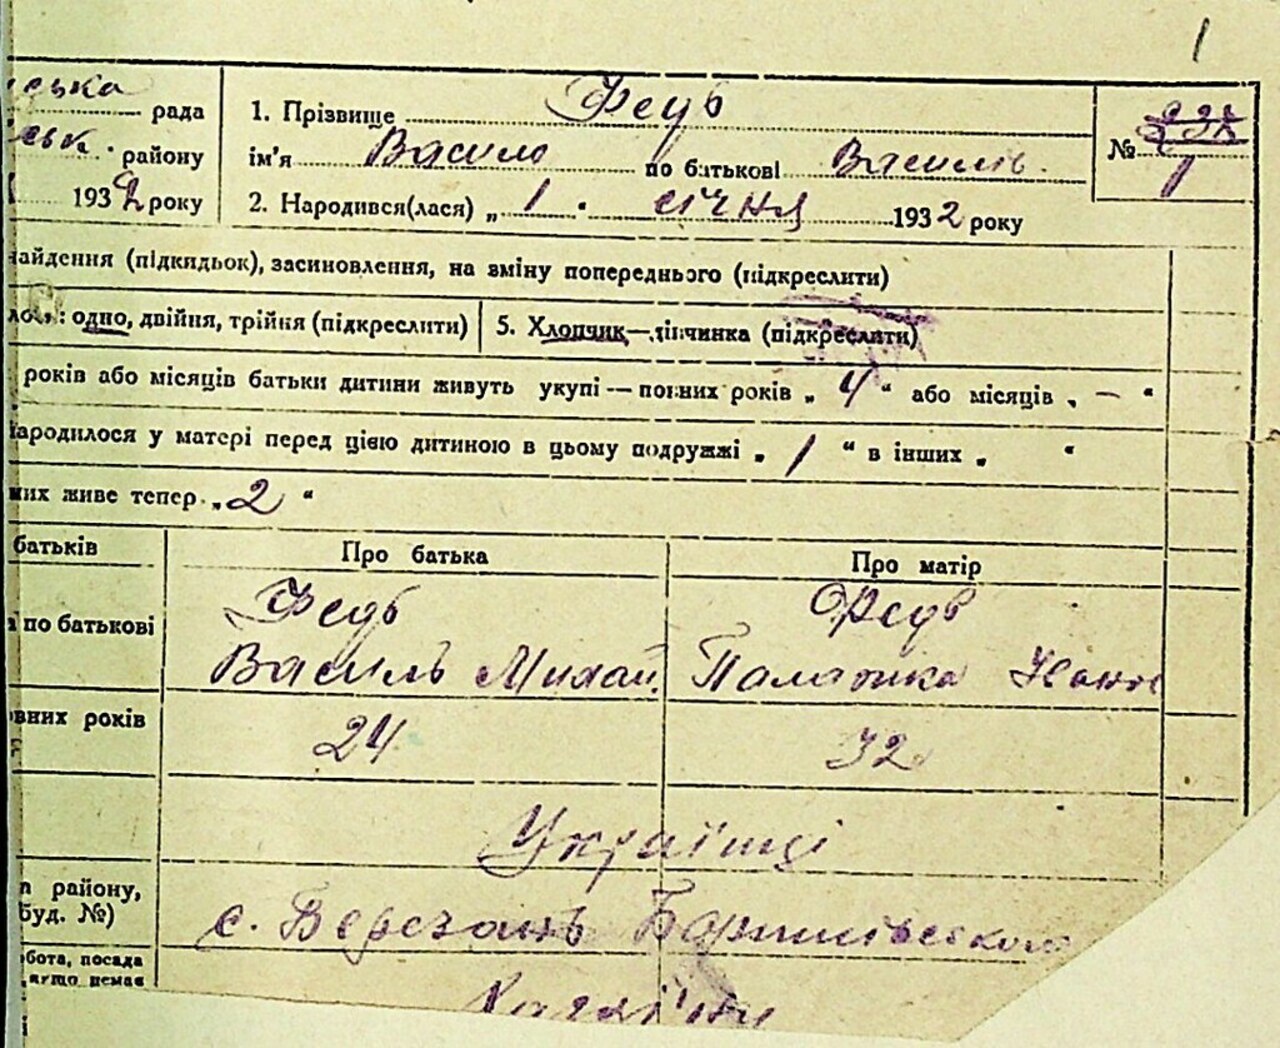 1
ська рада
ськ. району
1932 року
1. Прізвище Федь
ім'я Василь по батькові Василів.
2. Народився(лася) „ 1 " січня 1932 року
№ 1
найдення (підкидьок), засиновлення, на зміну попереднього (підкреслити)
одно, двійня, трійня (підкреслити)
5. Хлопчик—дівчинка (підкреслити)
років або місяців батьки дитини живуть укупі — повних років „ 4 " або місяців „ — "
народилося у матері перед цією дитиною в цьому подружжі „ 1 " в інших „ "
них живе тепер „ 2 "
батьків
Про батька
Про матір
по батькові
Федь
Василь Михай.
Федь
Іван
вних років
24
32
Українці
району,
буд. №)
с. Березань Баришівського
бота, посада
якщо немає